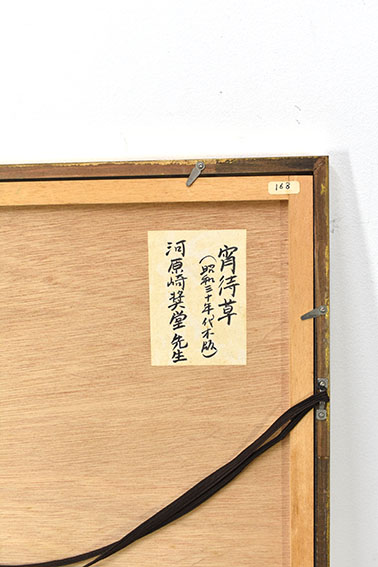 168
宵待草
(昭和三十年代木版)
河原崎奨堂先生